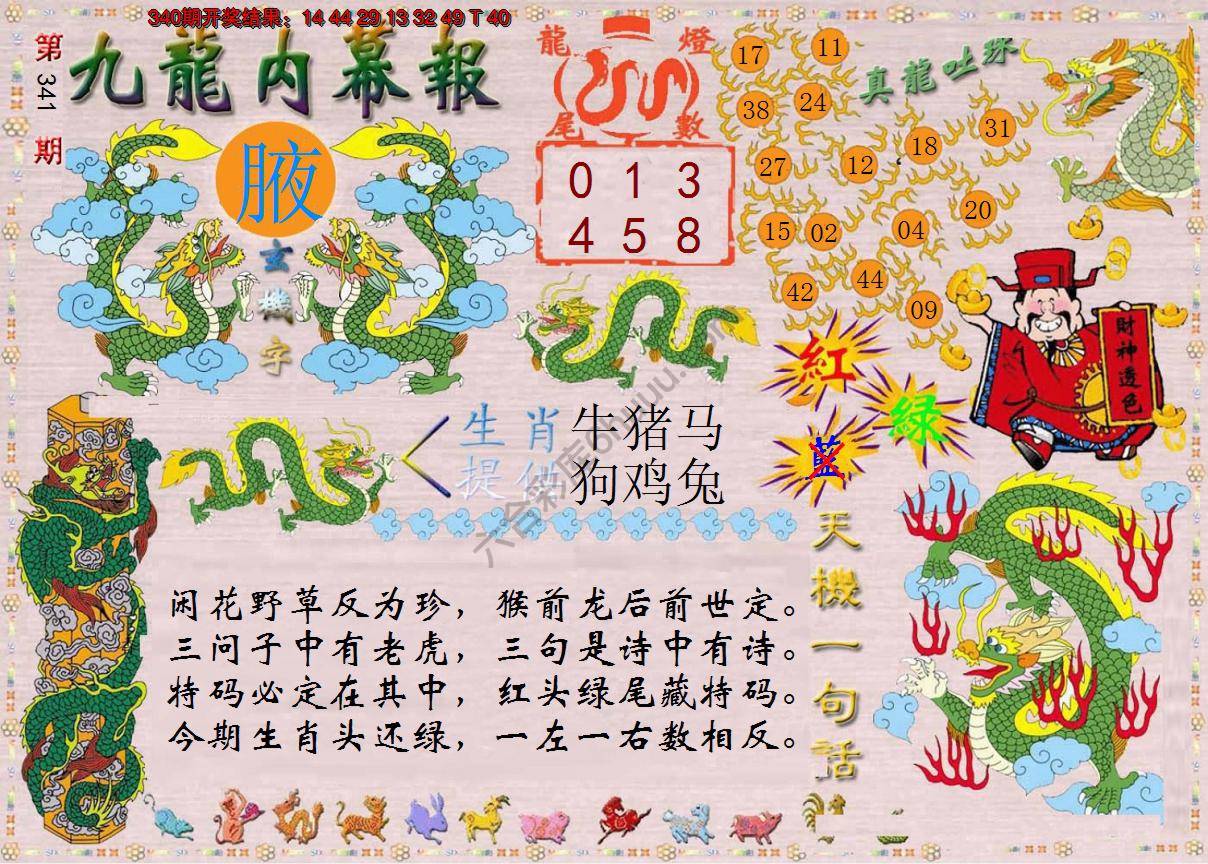 340期开奖结果：14 44 29 13 32 49 T 40
第341期
九龍内幕報
腋
玄機字
龍燈
尾數
0 1 3
4 5 8
真龍吐珠
17 11
38 24
27 12 18 31
15 02 04 20
42 44 09
財神透色
紅
綠
藍
生肖
提供
牛猪马
狗鸡兔
天機一句話
闲花野草反为珍，猴前龙后前世定。
三问子中有老虎，三句是诗中有诗。
特码必定在其中，红头绿尾藏特码。
今期生肖头还绿，一左一右数相反。